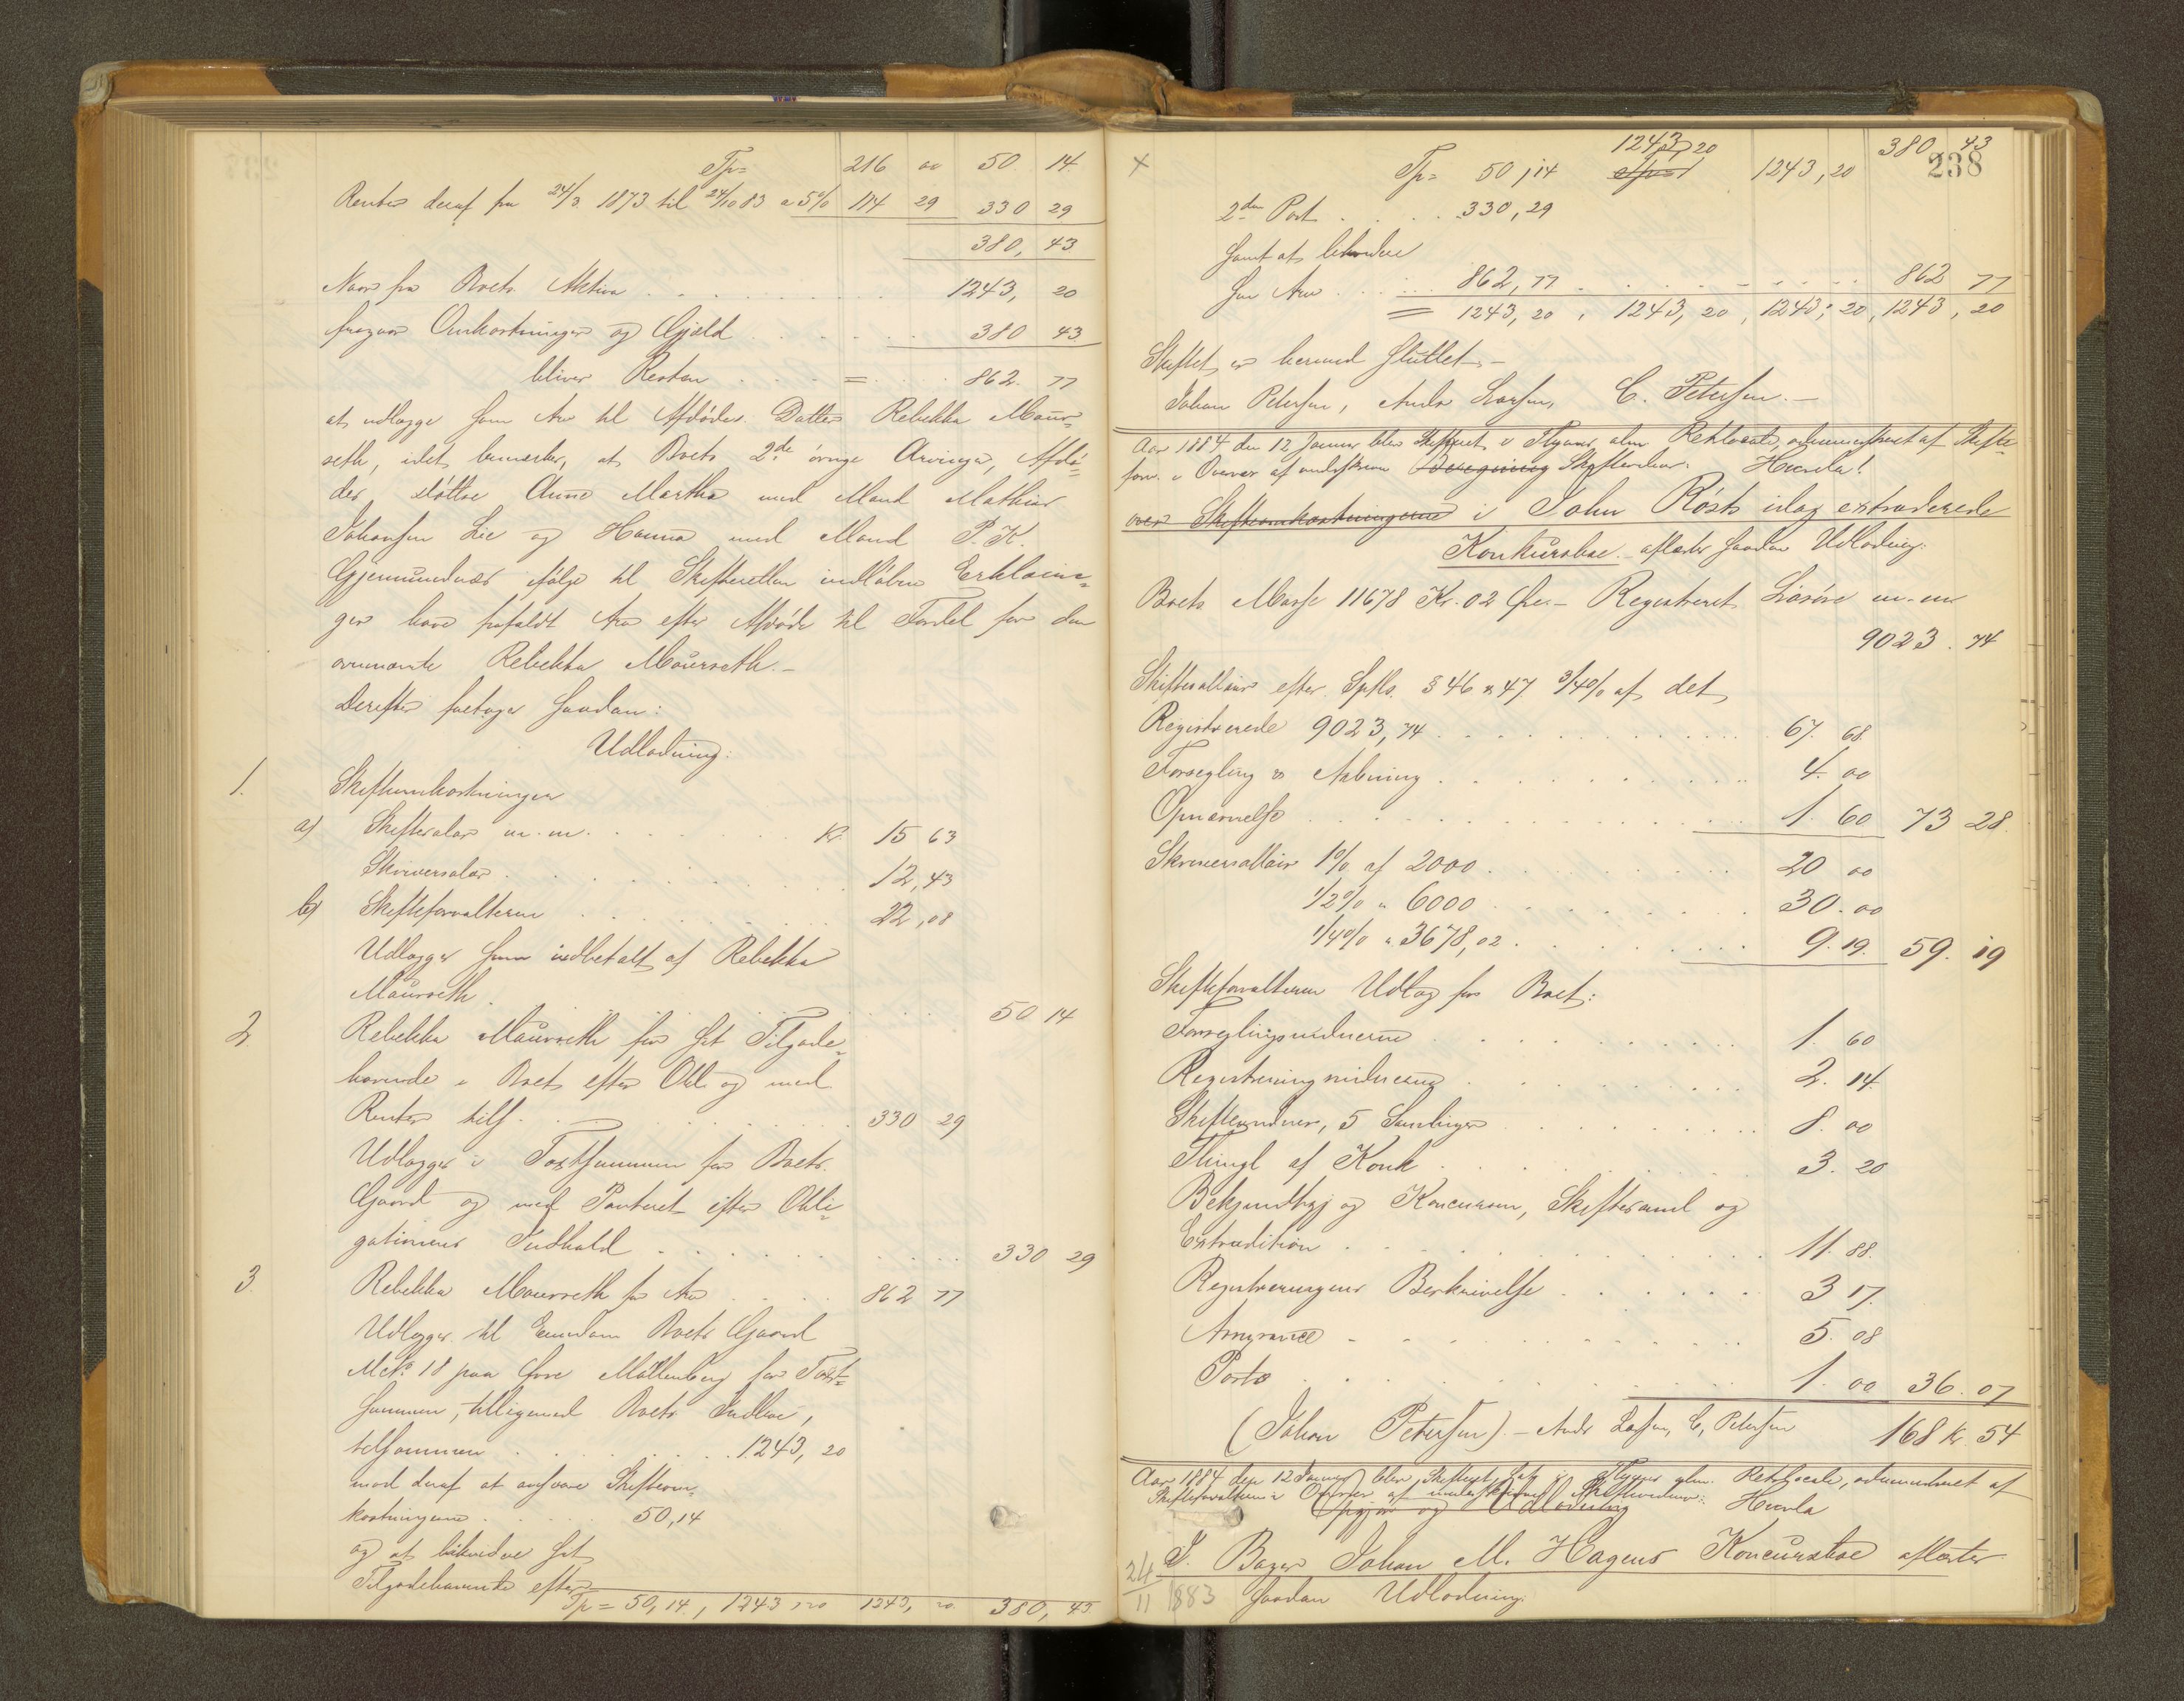 Tp= 216 00 50. 14.
Renter deraf fra 24/3 1873 til 24/10 83 a 5% 114 29 330 29
380, 43
Naar fra Boets Aktiva 1243, 20
fragaar Omkostninger og Gjæld 380 43
bliver Resten = 862. 77
at udlægge som Arv til Afdødes Datter Rebekka Maur-
seth, idet bemærkes, at Boets 2de øvrige Arvinger, Afdø-
des Døttre Anne Martha med Mand Mathias
Johansen Lie og Hanna med Mand P. K.
Gjemundnæs ifølge til Skifteretten indløbne Erklærin-
ger have frafaldt Arv efter Afdøde til Fordel for den
ovennævnte Rebekka Maurseth.-
Derefter foretages saadan:
Udlodning:
1. Skifteomkostninger
a) Skiftesalær m.m. Kr. 15 63
Skriversalær 12,43
b) Skifteforvalteren 22,08
Udlægges som indbetalt af Rebekka
Maurseth. 50 14
2 Rebekka Maurseth for sit Tilgode-
havende i Boet efter Obl. og med
Renter tils. 330 29
Udlægges i Taxtsummen for Boets
Gaard og med Panteret efter Obli-
gationens Indhold 330 29
3. Rebekka Maurseth for Arv 862 77
Udlægges til Eiendom Boets Gaard
Mck. 18 paa Øvre Møllenberg for Taxt-
summen, tilligemed Boets Indbo,
tilsammen 1243, 20
mod deraf at ansvare Skifteom-
kostningerne 50,14
og at likvidere sit
Tilgodehavende efter
Tp= 50,14, 1243 20 1243, 20. 380, 43
238
× Tp= 50,14 1243,20 1243,20 380 43
2den Post 330,29
samt at likvidere
sin Arv 862,77 862 77
= 1243,20, 1243,20, 1243,20, 1243,20
Skiftet er hermed sluttet.-
Johan Petersen, Andr Larsen, C. Petersen.-
Aar 1884 den 12 Januar blev Skifteret i Byens alm Retslocale, administreret af Skifte-
forv. i Overvær af underskrevne Beregning Skiftevidner. Hvorda!
over Skifteomkostningerne i John Røsts idag extraderede
Konkursbo aflagtes saadan Udlodning:
Boets Masse 11678 Kr. 02 Øre.- Registreret Løsøre m.m
9023. 74
Skiftesallair efter Sptls. § 46 & 47 3/4% af det
Registrerede 9023,74 67. 68
Forsegling & Aabning 4 00
Opnævnelse 1. 60 73 28.
Skriversallair 1% af 2000 20 00
1/2% " 6000 30.00
1/4% " 3678,02 9.19. 59. 19
Skifteforvalteren Udlæg for Boet:
Forseglingsvidnerne 1. 60
Registreringsvidnerne 2. 14.
Skiftevidner, 5 Samlinger 8. 00
Thingl af Konk 3. 20
Bekjendtgj og Koncursen, Skiftesaml og
Extradition 11. 88.
Registreringens Beskrivelse 3 17.
5. 08
Porto 1. 00 36. 07
(Johan Petersen).- Andr Larsen, C, Petersen 168 Kr 54
Aar 1884 den 12 Januar blev Skifteret sat i Byens alm. Retslocale, administreret af
Skifteforvalteren i Overvær af underskrevne Skiftevidner: Hvorda
Opgjør og Udlodning
I Bager Johan M. Hagens Koncursbo aflagtes
24/11 1883 saadan Udlodning: